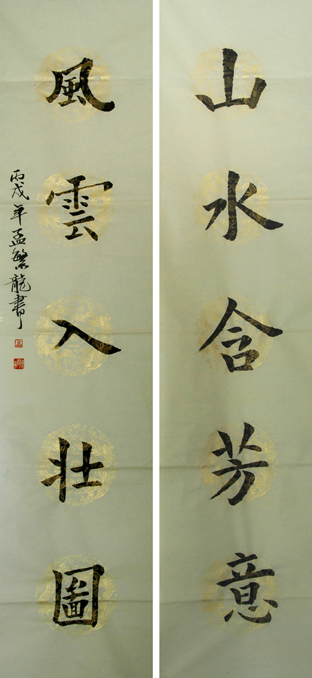 山水含芳意
風雲入壯圖
丙戌年孟繁龍書